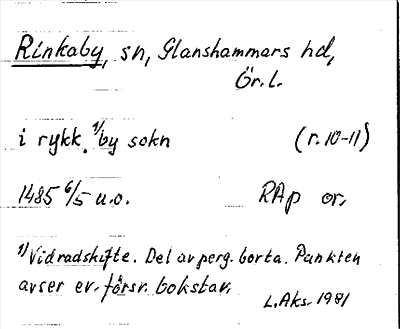 Rinkaby, sn, Glanshammars hd,
Ör.l.
i rykk. ¹⁾by sokn (r. 10-11)
1485 6/5 u.o. RAp or.
¹⁾Vidradskifte. Del av perg. borta. Punkten
avser ev. försv. bokstav.
L.Aks. 1981